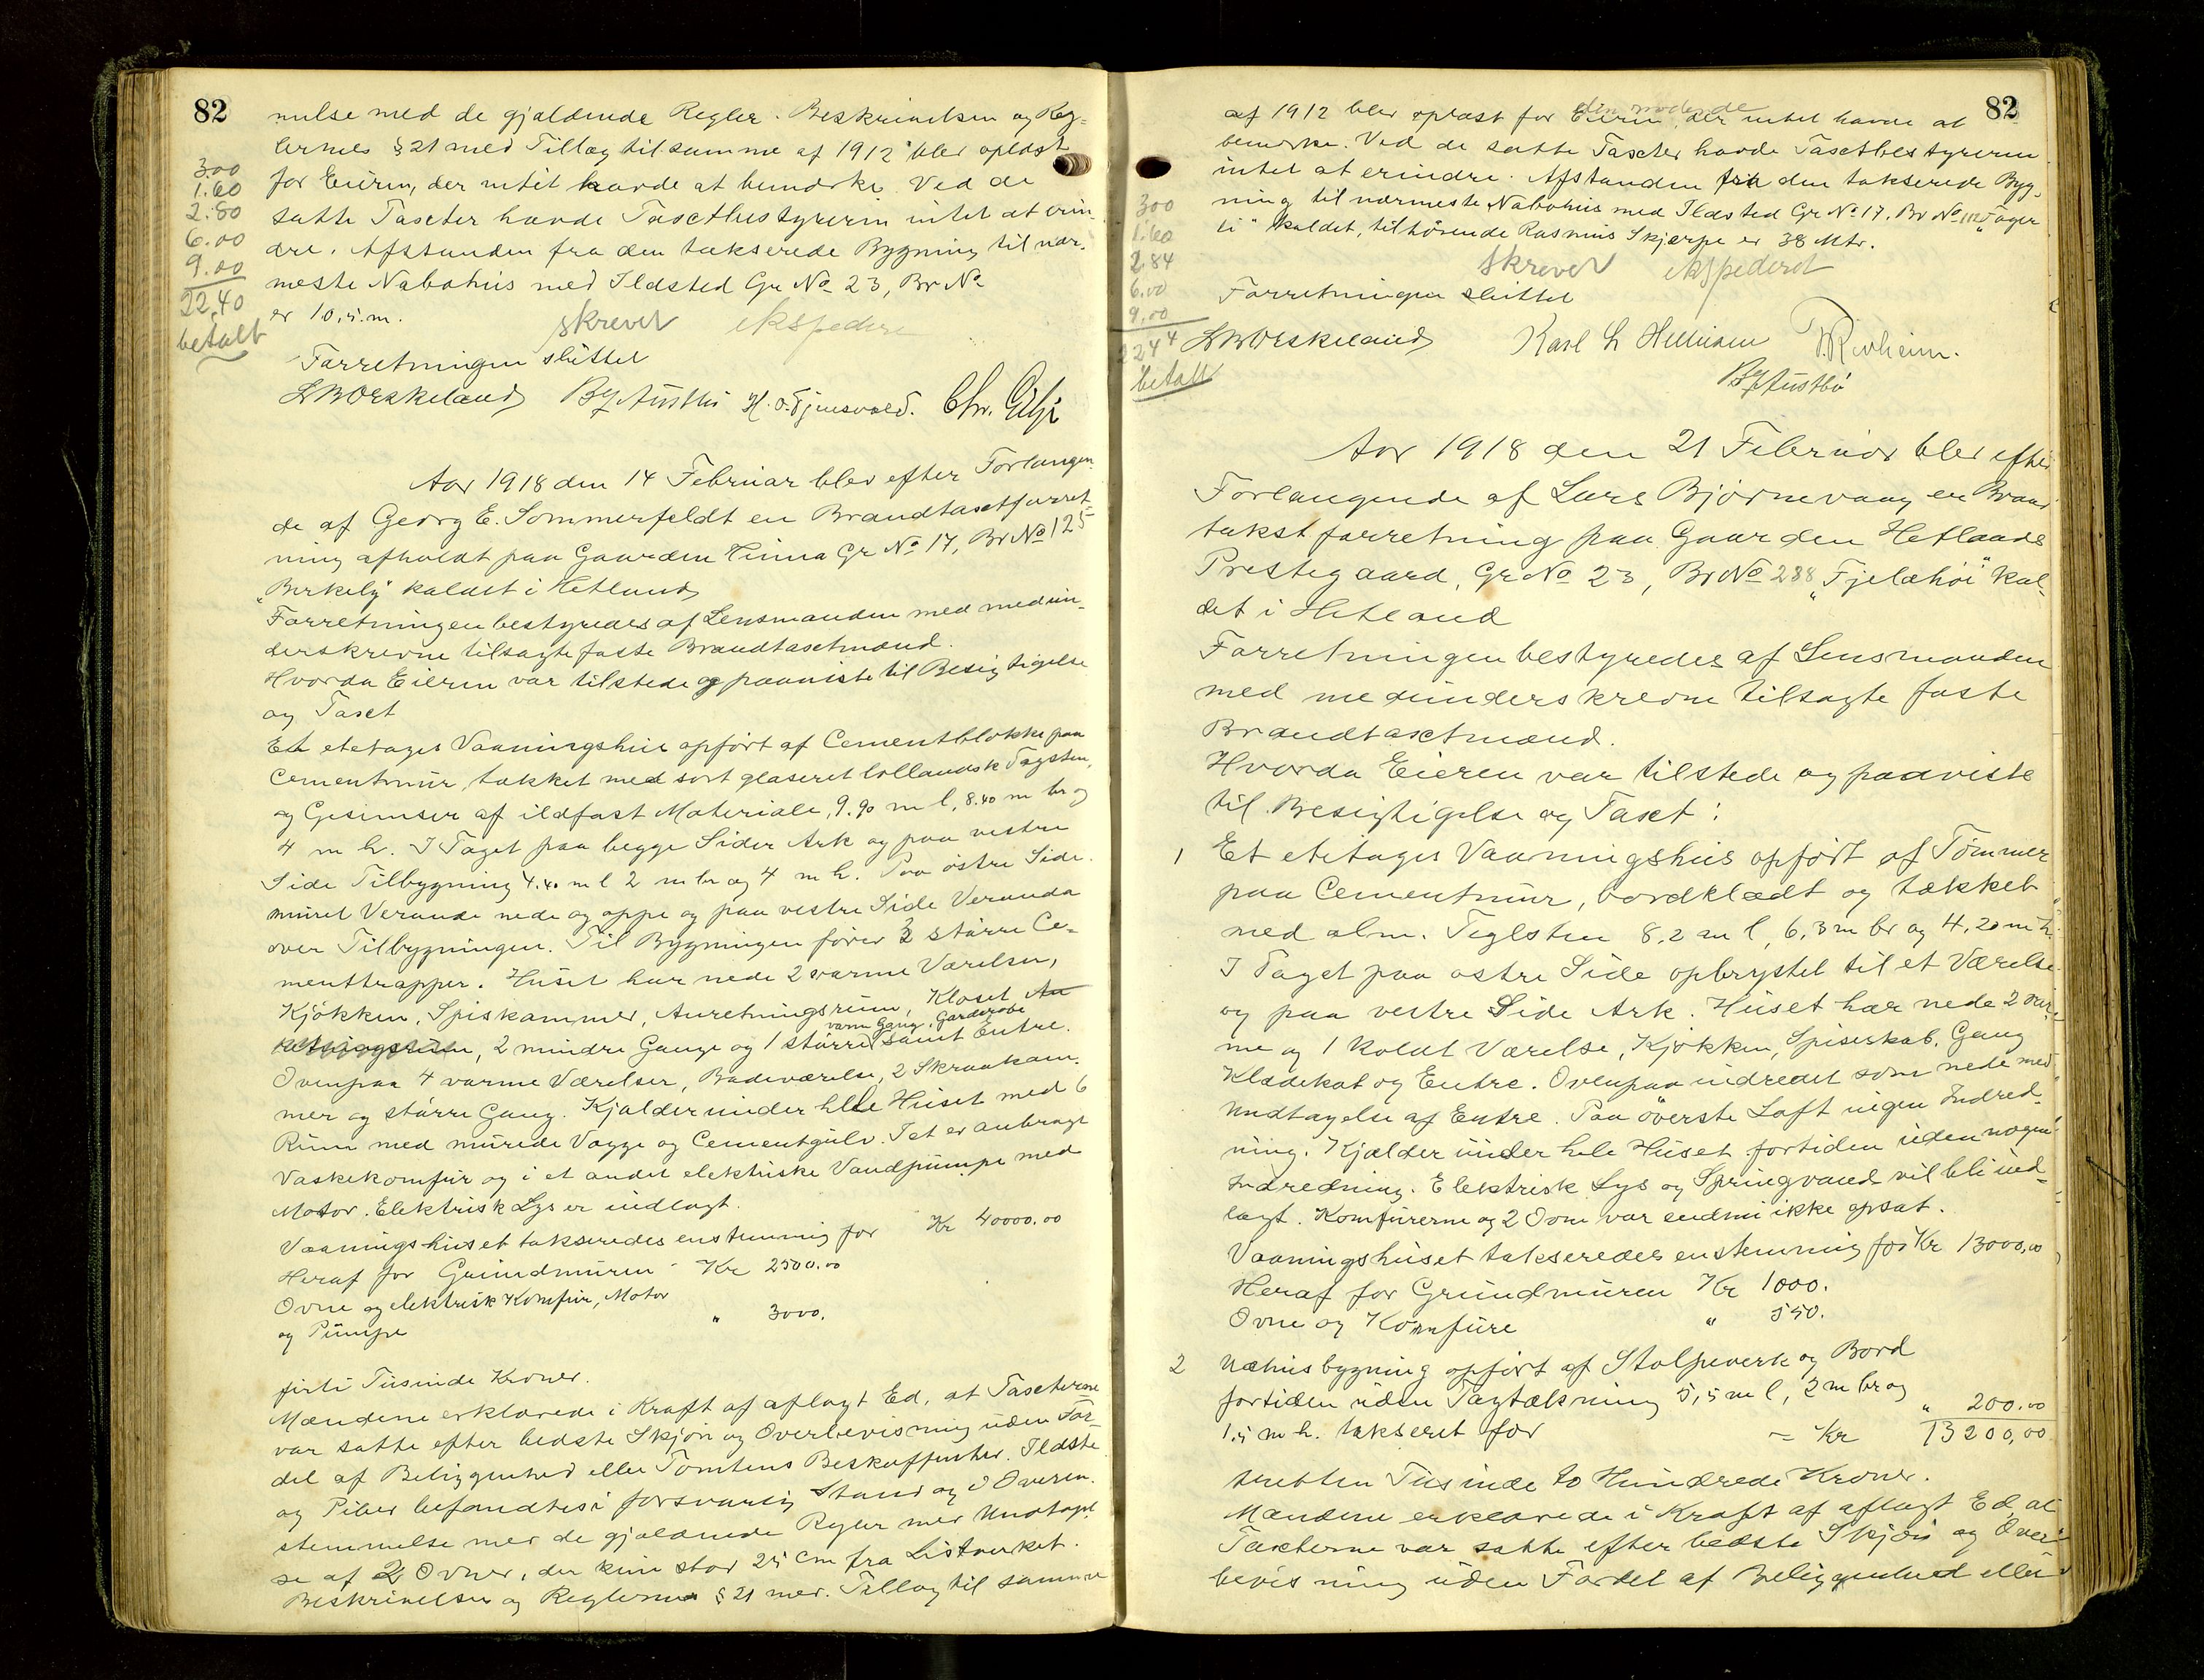 82
nelse med de gjældende Regler. Beskrivelsen og Reg-
lernes § 21 med Tillæg til samme af 1912 blev oplæst
for Eieren, der intet havde at bemærke. Ved de
satte Taxter havde Taxtbestyreren intet at erin-
dre. Afstanden fra den takserede Bygning til nær-
meste Nabohus med Ildsted Gr No 23, Br No
er 10,5 m.
skrevet ekspedere
3.00
1.60
2.80
6.00
9.00
22,40
betalt
Forretningen sluttet
Chr. Gilje
Aar 1918 den 14 Februar blev efter Forlangen-
de af Georg E. Sommerfeldt en Brandtaxtforret-
ning afholdt paa Gaarden Hinna Gr No 17, Br No 125
"Birkely" kaldet i Hetland
Forretningen bestyredes af Lensmanden med medun-
derskrevne tilsagte faste Brandtaxtmænd.
Hvorda Eieren var tilstede og paaviste til Besigtigelse
og Taxt
Et etetages Vaaningshus opført af Cementblokke paa
Cementmur, tækket med sort glaseret hollandsk Tagsten,
og Gesimser af ildfast Materiale, 9.90 m l, 8.40 m br og
4 m h. I Taget paa begge Sider Ark og paa vestre
Side Tilbygning 4.40 m l 2 m br og 4 m h. Paa østre Side
muret Veranda nede og oppe og paa vestre Side Veranda
over Tilbygningen. Til Bygningen fører 2 større Ce-
menttrapper. Huset har nede 2 varme Værelser,
Kjøkken, Spiskammer, Anretningsrum, Kloset An
retningsrum, 2 mindre Gange og 1 større varm Gang, Garderobe samt Entre.
Ovenpaa 4 varme Værelser, Badeværelse, 2 Skraakam-
mer og større Gang. Kjælder under hele Huset med 6
Rum med murede Vægge og Cementgulv. I et er anbragt
Vaskekomfur og i et andet elektriske Vandpumpe med
Motor. Elektrisk Lys er indlagt.
Vaaningshuset takseredes enstemmig for Kr 40000.00
Heraf for Grundmuren - Kr 2500.00
Ovne og elektrisk Komfur, Motor
og Pumpe " 3000.
firti Tusinde Kroner.
Mændene erklærede i Kraft af aflagt Ed, at Taxterne
var satte efter bedste Skjøn og Overbevisning uden For-
del af Beliggenhed eller Tomtens Beskaffenhet. Ildste
og Piber befandtes i forsvarlig Stand og i Overen-
stemmelse med de gjældende Regler med Undtagel-
se af 2 Ovner, der kun stod 25 cm fra Listverket.
Beskrivelsen og Reglernes § 21 med Tillæg til samme
82
af 1912 blev oplæst for Eieren den mødende, der intet havde at
bemærke. Ved de satte Taxter havde Taxtbestyreren
intet at erindre. Afstanden fra den takserede Byg-
ning til nærmeste Nabohus med Ildsted Gr No 17, Br No 112 "Fager
li" kaldet, tilhørende Rasmus Skjærpe er 38 Mtr.
skrevet ekspederet
3 00
1.60
2.84
6.00
9.00
22 44
betalt
Forretningen sluttet
Aar 1918 den 21 Februar blev efter
Forlangende af Lars Bjørnevaag en Brand
takstforretning paa Gaarden Hetlands
Prestegaard, Gr No 23, Br No 288 "Fjelæhøi" kal-
det i Hetland
Forretningen bestyredes af Lensmanden
med medunderskrevne tilsagte faste
Brandtaxtmænd.
Hvorda Eieren var tilstede og paaviste
til Besigtigelse og Taxt:
1 Et etetages Vaaningshus opført af Tømmer
paa Cementmur, bordklædt og tækket
med alm. Teglsten 8,2 m l, 6,3 m br og 4,20 m h.
I Taget paa østre Side opbrystet til et Værelse
og paa vestre Side Ark. Huset har nede 2 var-
me og 1 koldt Værelse, Kjøkken, Spiserkab, Gang
Klædekot og Entre. Ovenpaa indredet som nede med
Undtagelse af Entre. Paa øverste Loft ingen Indred-
ning. Kjælder under hele Huset fortiden uden nogen
Indredning. Elektrisk Lys og Springvand vil bli ind-
lagt. Komfurerne og 2 Ovne var endnu ikke opsat.
Vaaningshuset takseredes enstemmig for Kr 13000,00
Heraf for Grundmuren Kr 1000.
Ovne og Komfure " 550.
2 Uthusbygning opført af Stolpeverk og Bord
fortiden uden Tagtækning 5,5 m l, 2 m br og
1.5 m h. takseret for " 200.00
= Kr 13200,00
tretten Tusinde to Hundrede Kroner.
Mændene erklærede i Kraft af aflagt Ed, at
Taxterne var satte efter bedste Skjøn og Over-
bevisning uden Fordel af Beliggenhed eller